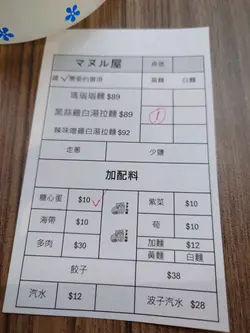 マヌル屋
請✓需要的餐湯 黃麵 白麵
瑪瑙瑙麵 $89
黑蒜雞白湯拉麵 $89 1
辣味噌雞白湯拉麵 $92
走蔥 少鹽
加配料
糖心蛋 $10 ✓ 紫菜 $10
海帶 $10 筍 $10
多肉 $30 加麵 $12
黃麵 白麵
餃子 $38
汽水 $12 波子汽水 $28